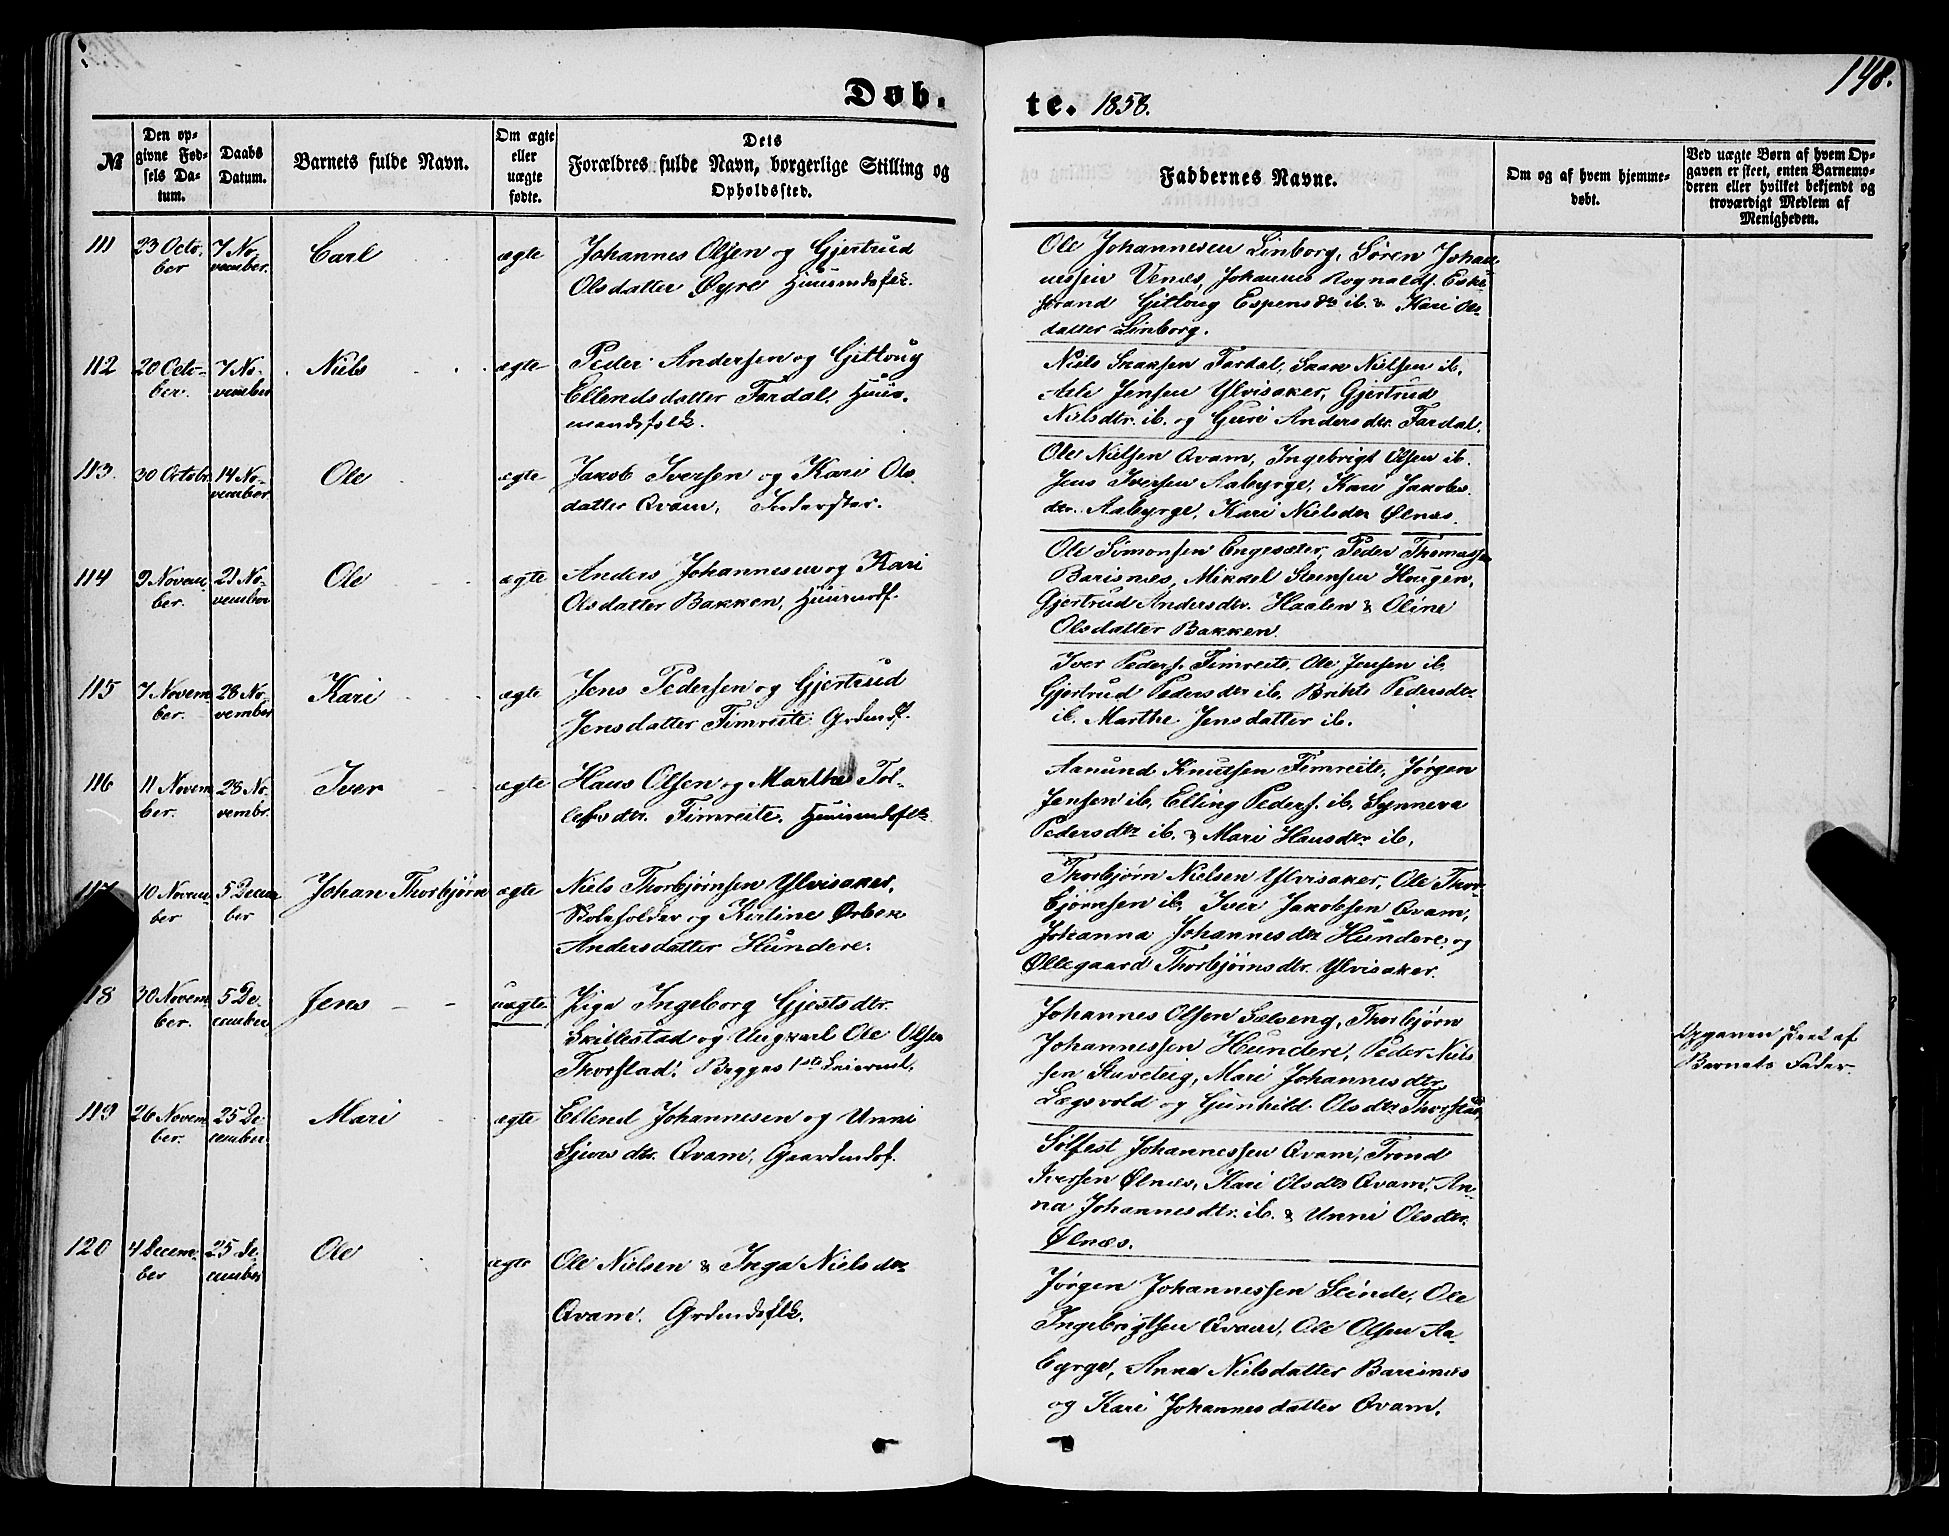 148.
Døb.
te. 1858.
№
Den op-
givne Fød-
sels Da-
tum.
Daabs
Datum.
Barnets fulde Navn.
Om ægte
eller
uægte
fødte.
Dets
Forældres fulde Navn, borgerlige Stilling og
Opholdssted.
Faddernes Navne.
Om og af hvem hjemme-
døbt.
Ved uægte Børn af hvem Op-
gaven er skeet, enten Barnemo-
deren eller hvilket bekjendt og
troværdigt Medlem af
Menigheden.
111
23 Octo-
ber
7 No-
vember.
Carl
ægte
Johannes Olsen og Gjertrud
Olsdatter Øyre Huusmdsfolk.
Ole Johannesen Linborg, Søren Johan
nessen Venæs, Johannes Rognalds. Eske
strand Gitlaug Espensdtr ib. & Kari Ols
datter Linborg.
112
20 Octo-
ber.
7 No-
vember
Niels
ægte
Peder Andersen og Gitlaug
Ellendsdatter Fardal, Huus-
mandsfolk.
Niels Skaksen Fardal, Skak Nielsen ib.
Atle Jensen Ylvisaker, Gjertrud
Nielsdtr. ib. og Guri Andersdtr. Fardal.
113.
30 Octobr.
14 No-
vember.
Ole
ægte
Jakob Iversen og Kari Ols
datter Qvam, Inderster.
Ole Nielsen Qvam, Ingebrigt Olsen ib.
Jens Iversen Aabyrge, Kari Jakobs
dtr. Aabyrge, Kari Nielsdtr Ølnæs.
114
9 Novem-
ber.
21 No-
vember
Ole
ægte
Anders Johannesen og Kari
Olsdatter Bakken, Huusmdf.
Ole Simonsen Engesæter, Peder Thomassen
Barisnæs, Mikkel Steensen Haugen,
Gjertrud Andersdtr. Haalen & Oline
Olsdatter Bakken.
115
7 Novem
ber.
28 No-
vember
Kari
ægte
Jens Pedersen og Gjertrud
Jensdatter Fimreite Grdmdf.
Iver Peders. Fimreite, Ole Jensen ib.
Gjertrud Pedersdtr ib. Brihte Pedersdtr
ib. Marthe Jensdatter ib.
116
11 Novem
ber.
28 No-
vembr.
Iver
ægte
Hans Olsen og Marthe Tol-
lefsdtr. Fimreite. Huusmdsfolk
Aamund Knutsen Fimreite, Jørgen
Jensen ib, Elling Peders. ib, Synneva
Pedersdtr ib. & Mari Hansdtr ib.
117
10 Novem-
ber
5 Decem
ber
Johan Thorbjørn
ægte
Niels Thorbjørnsen Ylvisaker,
Skoleholder og Kirline Ørbek
Andersdatter Hundere.
Thorbjørn Nielsen Ylvisaker, Ole Thor-
bjørnsen ib, Iver Jakobsen Qvam,
Johanna Johannesdtr Hundere, og
Øllegaard Thorbjørnsdtr. Ylvisaker.
118
30 Novem
ber.
5 De-
cember
Jens
uægte.
Pige Ingeborg Gjestsdtr.
Skillestad og Ungkarl Ole Olsen
Thorstad. Begges 1ste Leierml.
Johannes Olsen Sælseng, Thorbjørn
Johannessen Hundere, Peder Niels
sen Stuveteig, Mari Johannesdtr
Lægsvold og Gunhild Olsdtr Thorstad.
Opgaven skeet af
Barnets Fader.
119
26 Novem
ber.
25 De-
cember
Mari
ægte
Ellend Johannesen og Unni
Sjursdtr. Qvam, Gaardmdsf.
Sølfest Johannessen Qvam, Trond
Iversen Ølnæs, Kari Olsdtr Qvam, An-
na Johannesdtr. ib. & Unni Olsdtr.
Ølnæs.
120
4 Decem-
ber
25 De-
cember
Ole
ægte
Ole Nielsen & Inga Nielsdtr
Qvam. Grdmdsflk.
Jørgen Johannessen Slinde, Ole
Ingebrigtsen Qvam, Ole Olsen Aa-
byrge, Anna Nielsdatter Barisnæs
og Kari Johannesdatter Qvam.